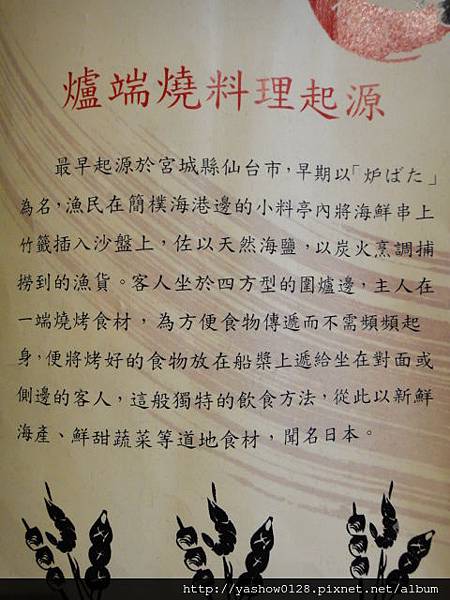 爐端燒料理起源
最早起源於宮城縣仙台市，早期以「炉ばた」
為名，漁民在簡樸海港邊的小料亭內將海鮮串上
竹籤插入沙盤上，佐以天然海鹽，以炭火烹調捕
撈到的漁貨。客人坐於四方型的圍爐邊，主人在
一端燒烤食材，為方便食物傳遞而不需頻頻起
身，便將烤好的食物放在船槳上遞給坐在對面或
側邊的客人，這般獨特的飲食方法，從此以新鮮
海產、鮮甜蔬菜等道地食材，聞名日本。
http://yashow0128.pixnet.net/album